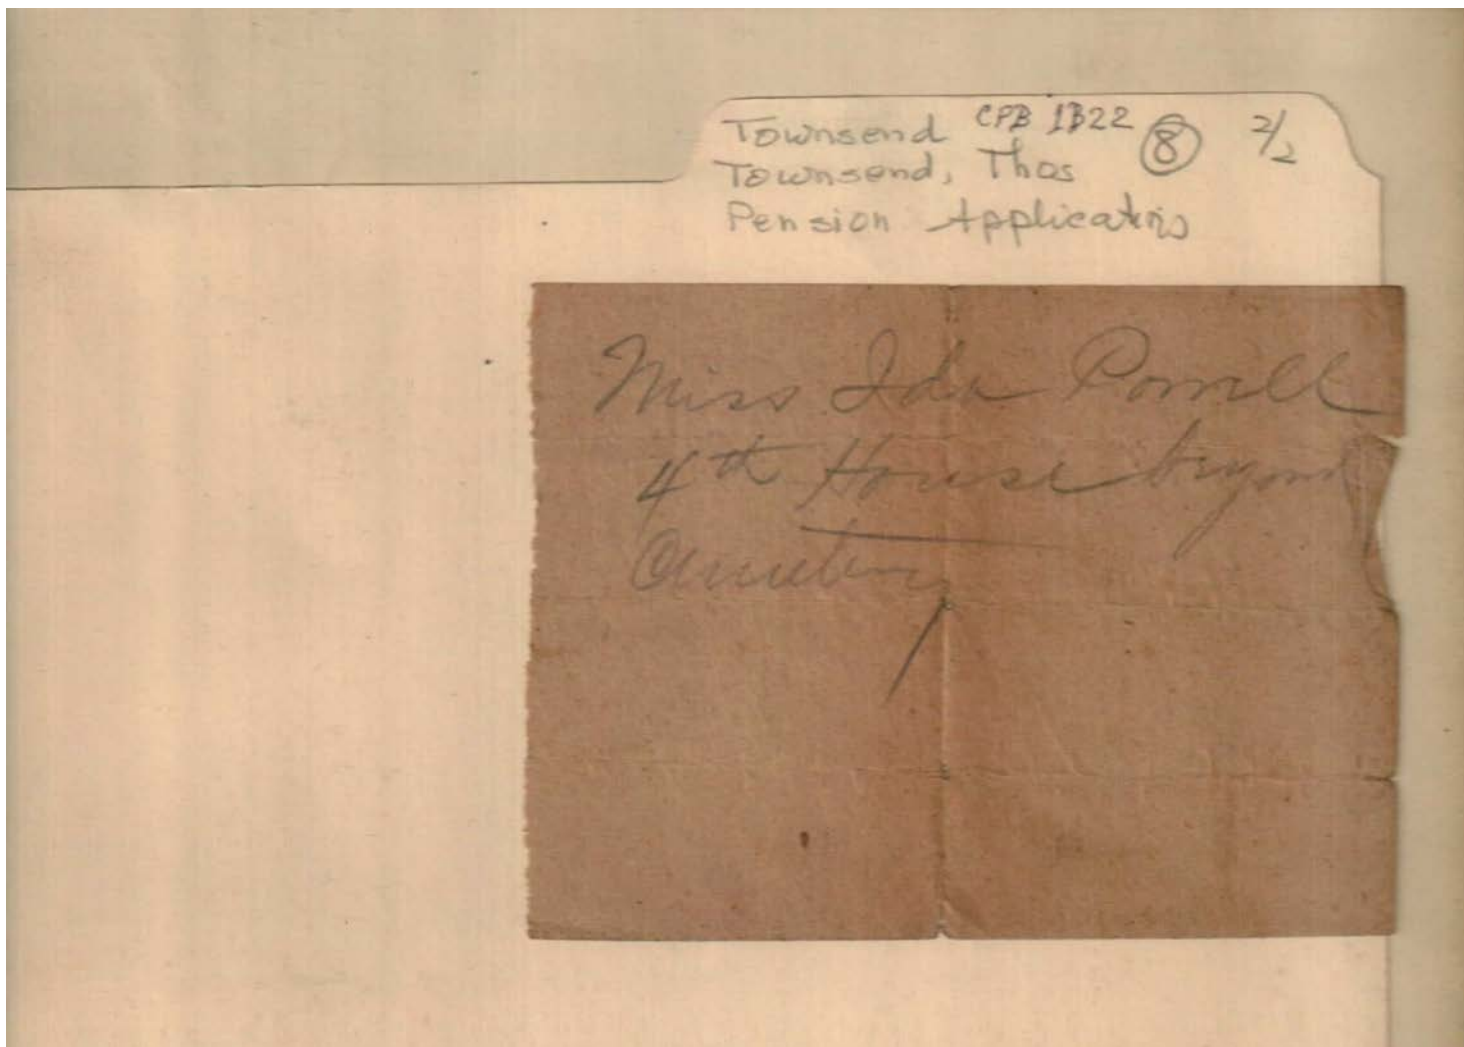 Townsend CPB 1B22 ⑧ 2/2
Townsend, Thos
Pension Applications
Miss Ida Powell
4th House beyond
Cemetery